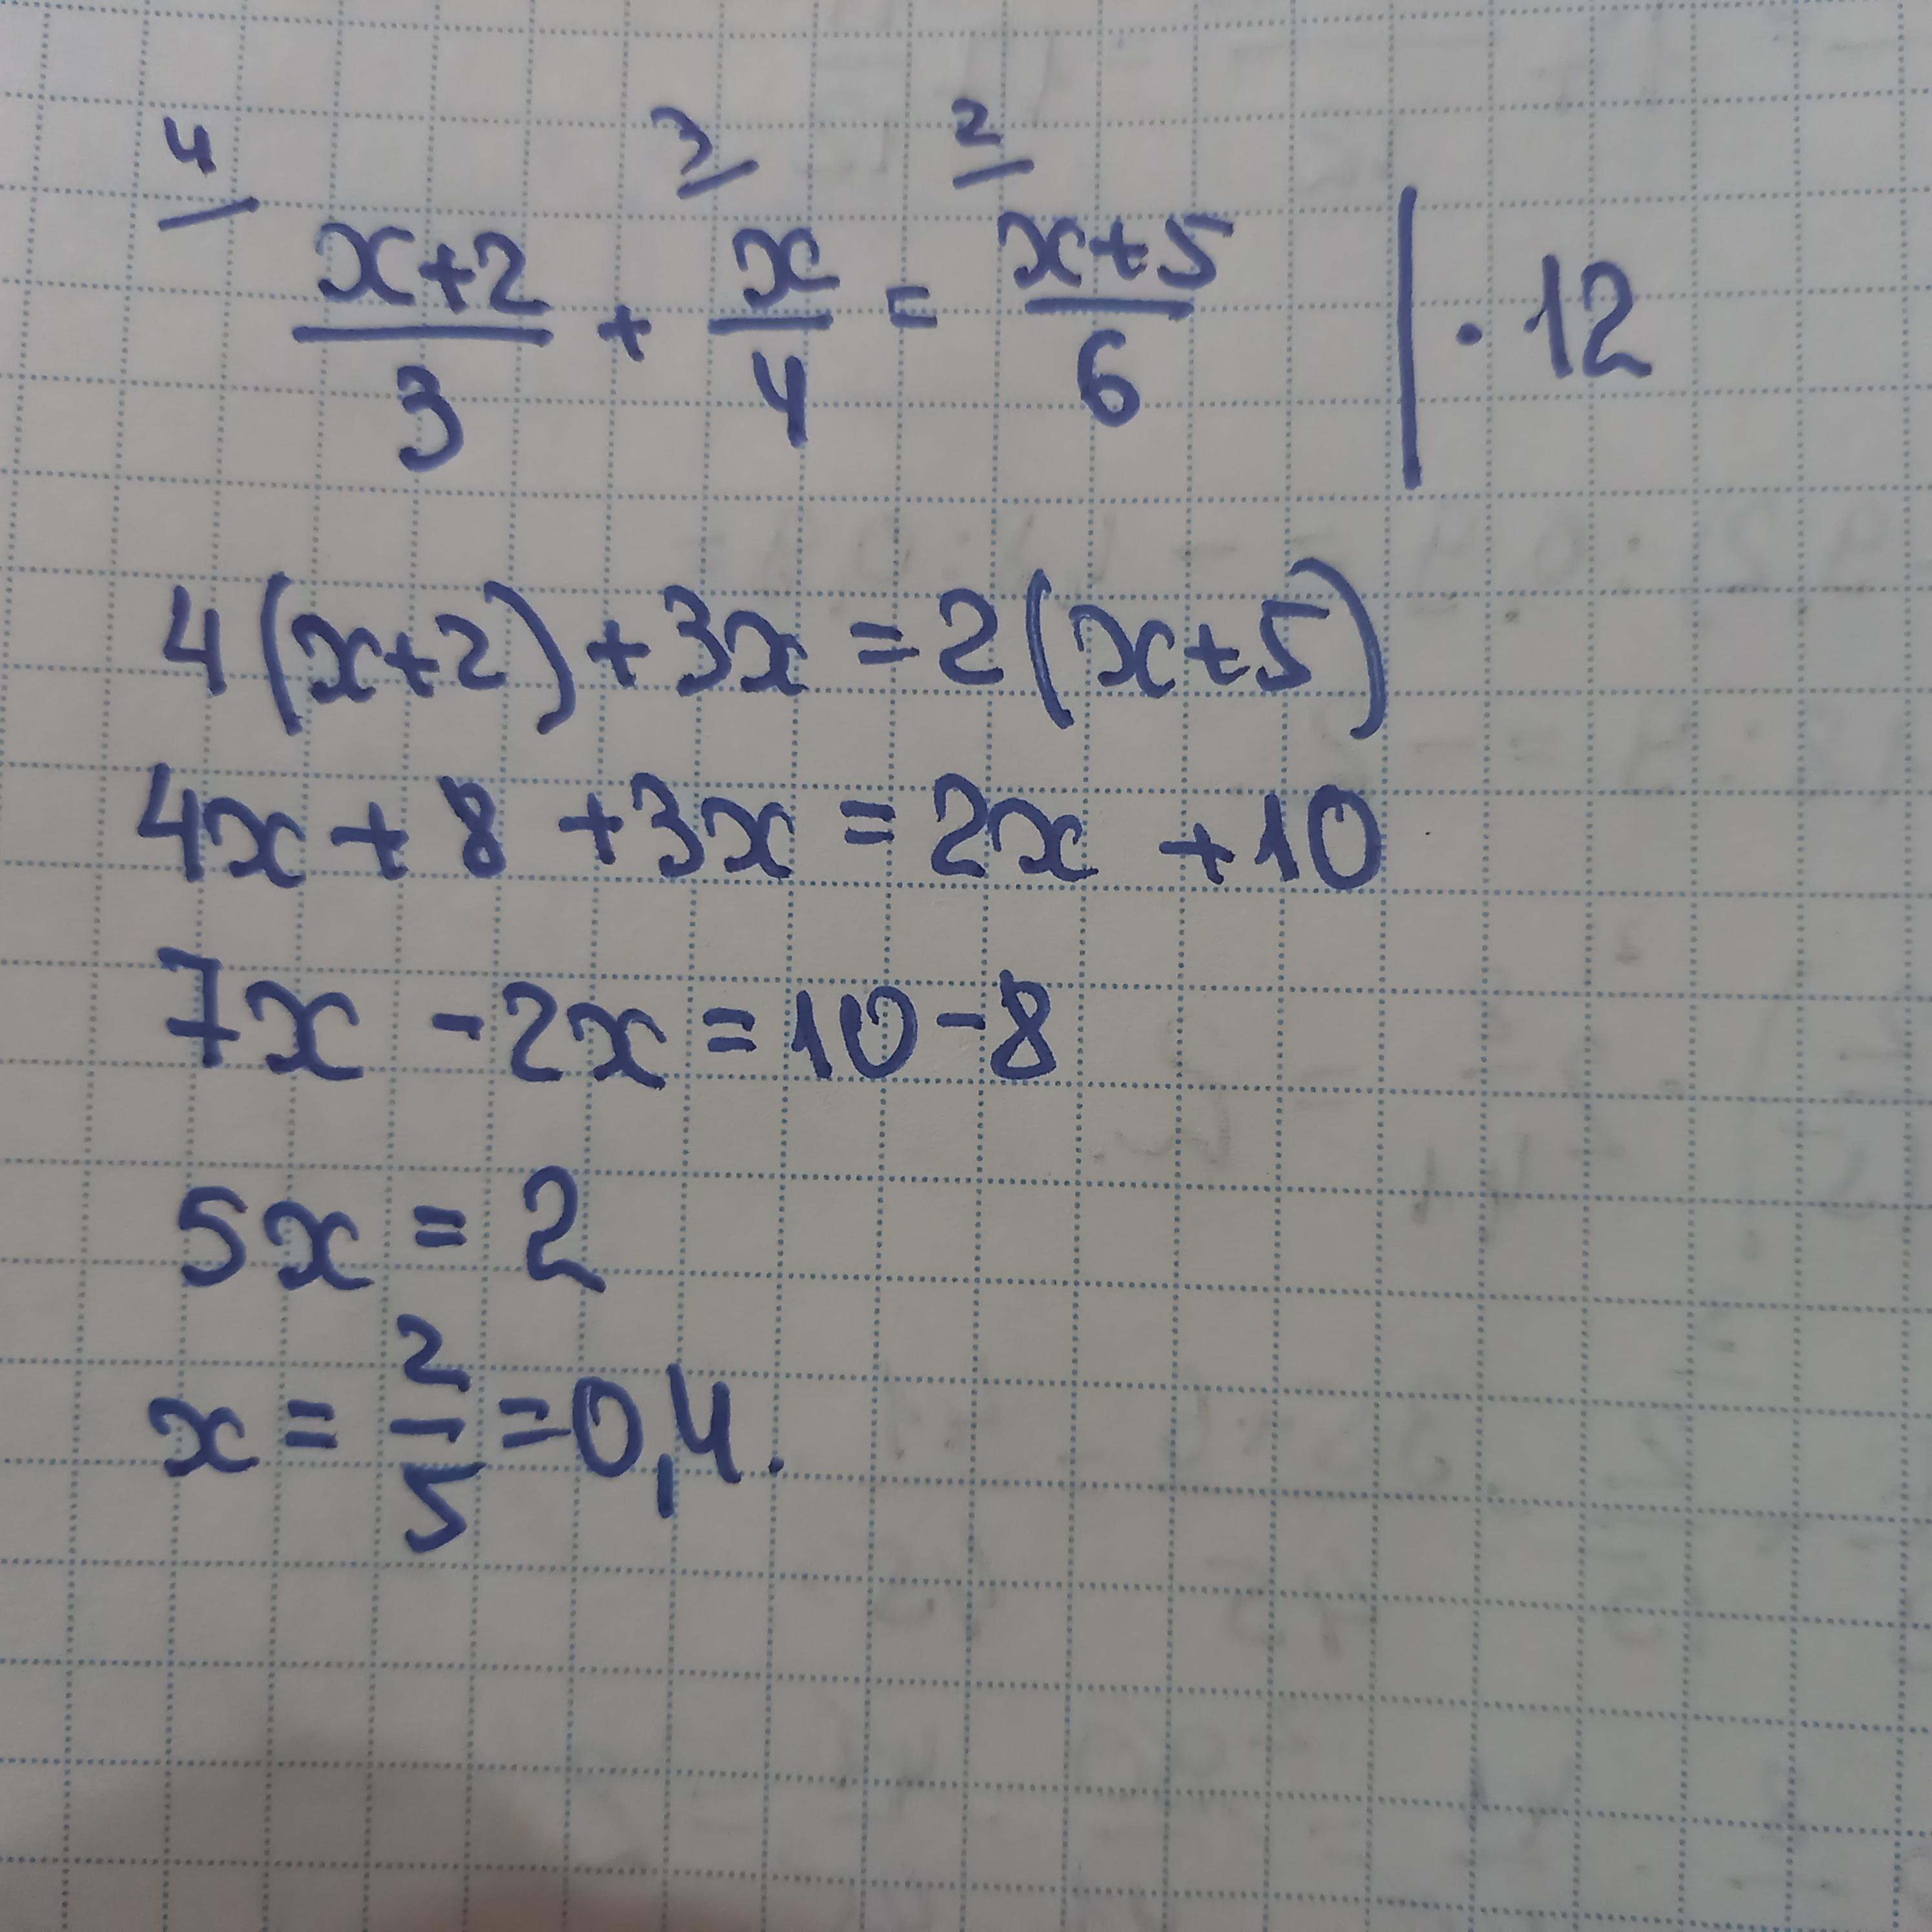 4 3 2
x+2/3 + x/4 = x+5/6 | · 12
4(x+2)+3x=2(x+5)
4x+8+3x=2x+10
7x-2x=10-8
5x=2
x=2/5=0,4.